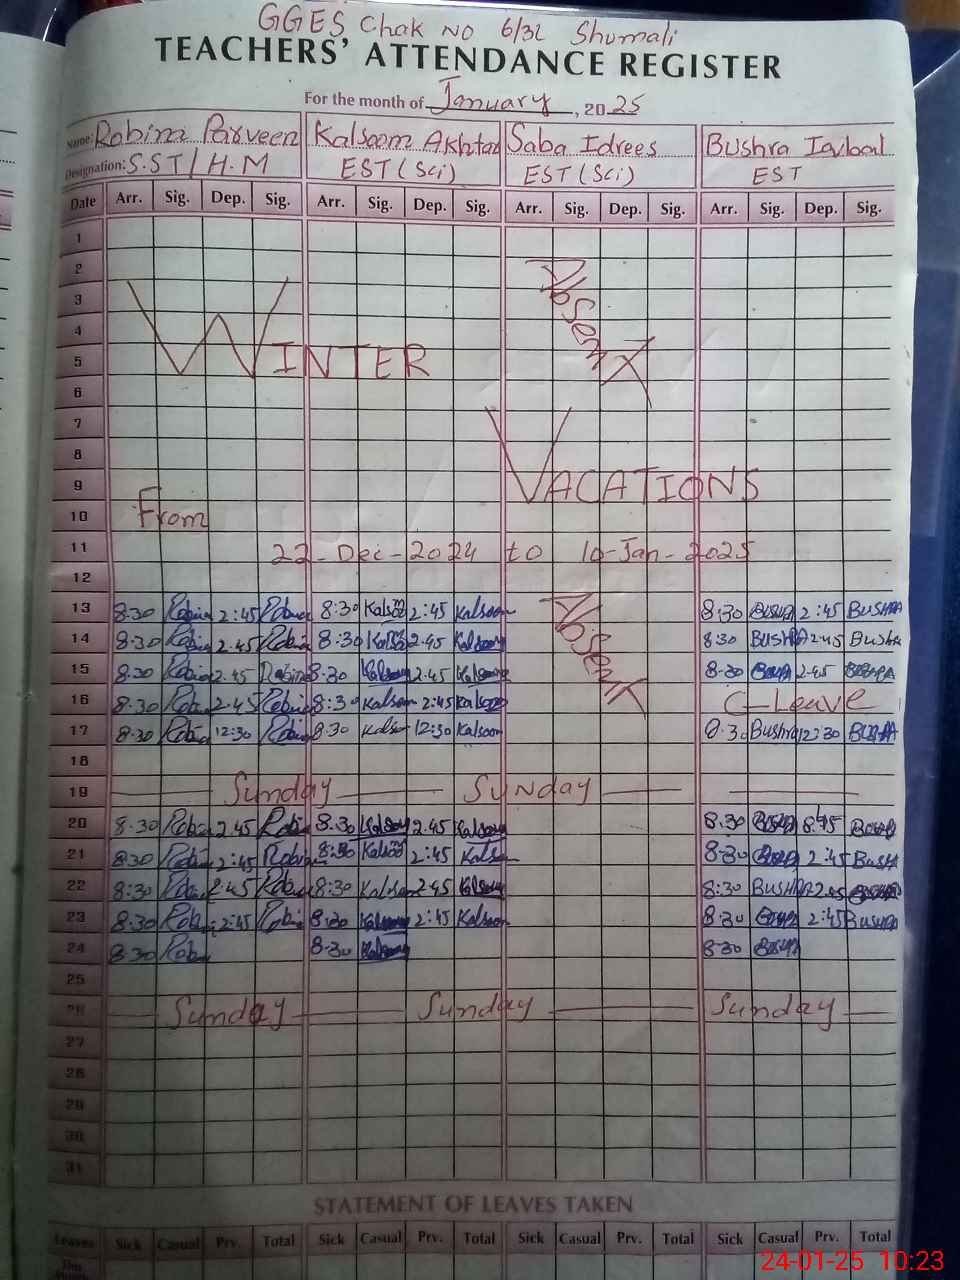 GGES Chak No 6/3L Shumali
TEACHERS' ATTENDANCE REGISTER
For the month of January, 2025
Name: Robina Parveen Kalsoom Akhtar Saba Idrees Bushra Iqbal
Designation: S.ST/H.M EST (Sci) EST (Sci) EST
Date Arr. Sig. Dep. Sig. Arr. Sig. Dep. Sig. Arr. Sig. Dep. Sig. Arr. Sig. Dep. Sig.
1
2 Absent
3
4
5 WINTER
6
7
8
9 VACATIONS
10 From
11 22-Dec-2024 to 10-Jan-2025
12
13 8:30 Robina 2:45 Robina 8:30 Kalsoom 2:45 Kalsoom Absent 8:30 BUSHRA 2:45 BUSHRA
14 8:30 Robina 2:45 Robina 8:30 Kalsoom 2:45 Kalsoom 8:30 BUSHRA 2:45 Bushra
15 8:30 Robina 2:45 Robina 8:30 Kalsoom 2:45 Kalsoom 8:30 2:45 BUSHRA
16 8:30 Rob 2:45 Robina 8:30 Kalsoom 2:45 Kalsoom C-Leave
17 8:30 Rob 12:30 Robina 8:30 Kalsoom 12:30 Kalsoom 8:30 Bushra 12:30 BUSHRA
18
19 Sunday Sunday
20 8:30 Robina 2:45 Rob 8:30 Kalsoom 2:45 Kalsoom 8:30
21 8:30 Robina 2:45 Robina 8:30 Kalsoom 2:45 Kalsoom 8:30 2:45 BUSHRA
22 8:30 Robina 2:45 Robina 8:30 Kalsoom 2:45 Kalsoom 8:30 BUSHRA 2:45
23 8:30 Rob 2:45 Robina 8:30 Kalsoom 2:45 Kalsoom 8:30 2:45 BUSHRA
24 8:30 Rob 8:30 Kalsoom 8:30
25
26 Sunday Sunday Sunday
27
28
29
30
31
STATEMENT OF LEAVES TAKEN
Leaves Sick Casual Prv. Total Sick Casual Prv. Total Sick Casual Prv. Total Sick Casual Prv. Total
This
24-01-25 10:23